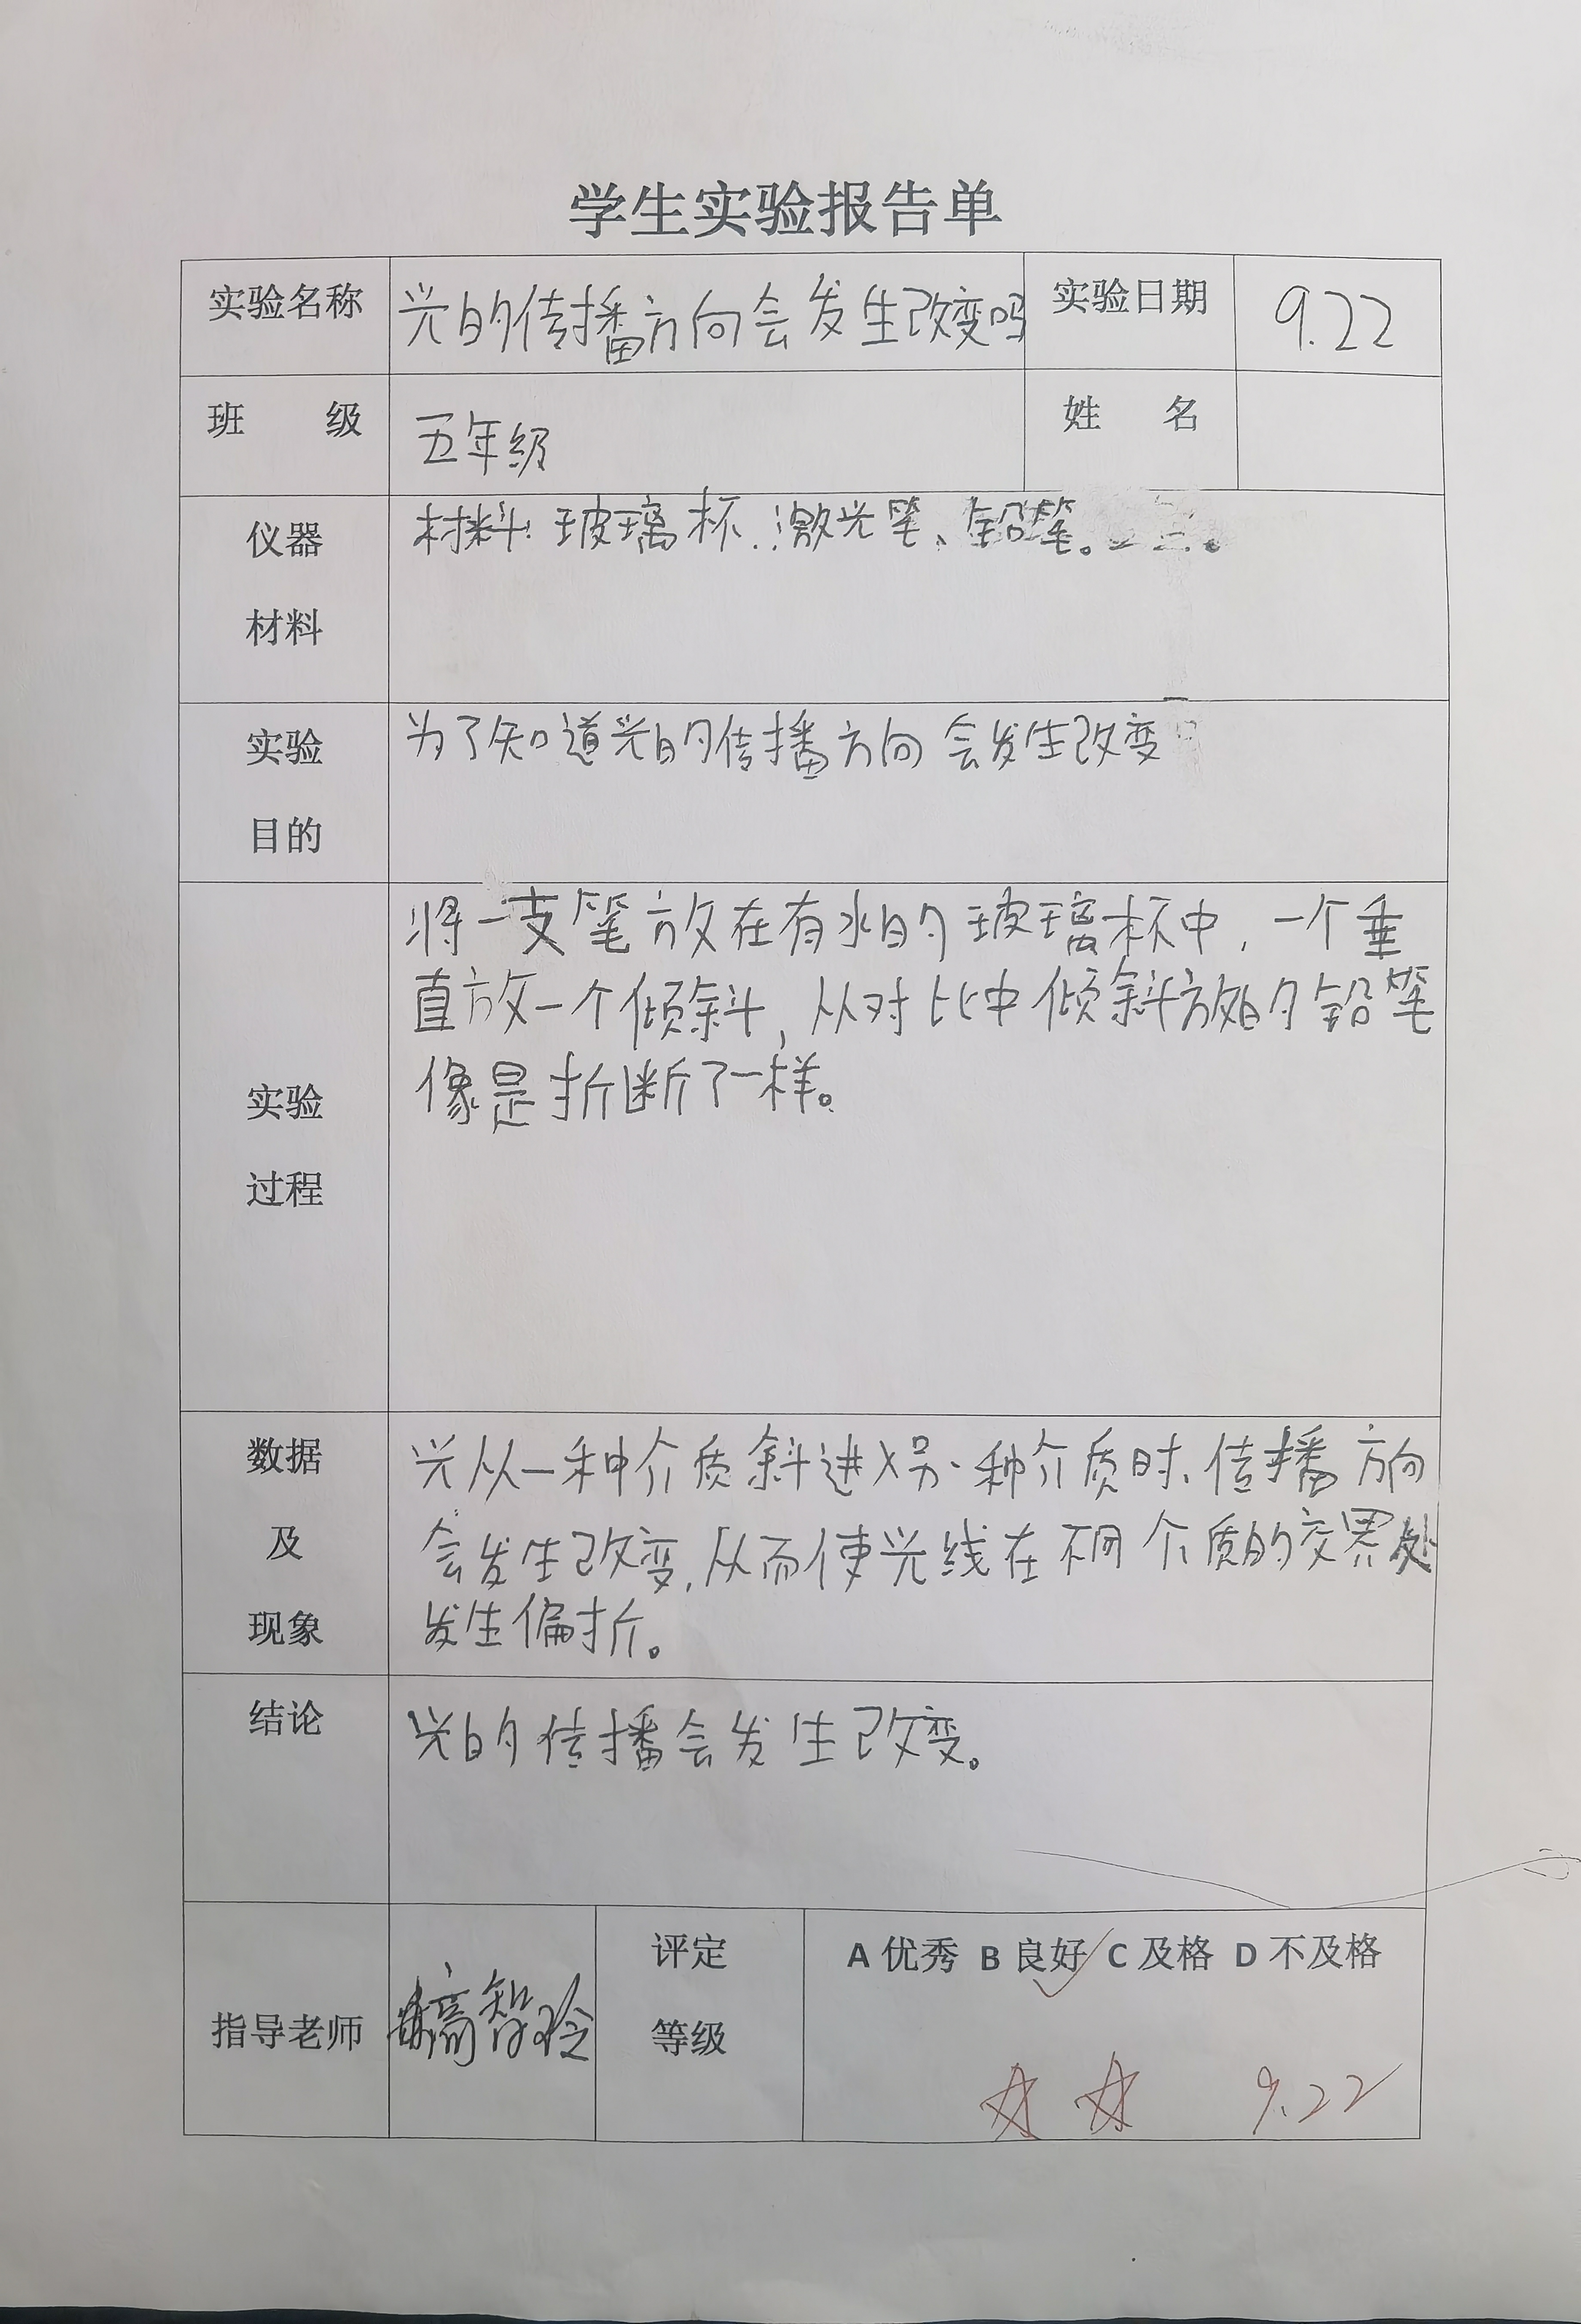 学生实验报告单
实验名称 光的传播方向会发生改变吗 实验日期 9.22
班 级 五年级 姓 名
仪器 材料: 玻璃杯、激光笔、铅笔。
材料
实验 为了知道光的传播方向会发生改变
目的
将一支笔放在有水的玻璃杯中,一个垂
直放一个倾斜,从对比中倾斜放的铅笔
像是折断了一样。
实验
过程
数据 光从一种介质斜进入另一种介质时、传播方向
及 会发生改变,从而使光线在不同介质的交界处
现象 发生偏折。
结论 光的传播会发生改变。
评定 A 优秀 B 良好 C 及格 D 不及格
指导老师 等级
9.22